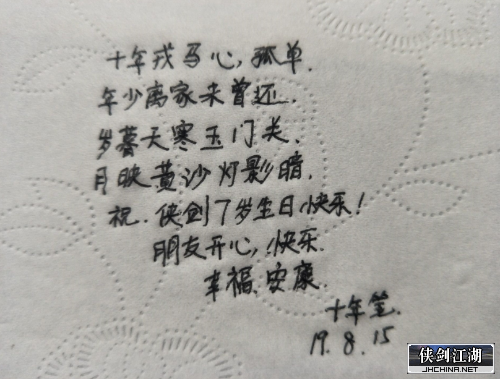 十年戎马心，孤单.
年少离家未曾还.
岁暮天寒玉门关.
月映黄沙灯影暗.
祝.侠剑7岁生日快乐!
朋友开心，快乐.
幸福、安康.
十年笙.
19.8.15
侠剑江湖
JHCHINA.NET